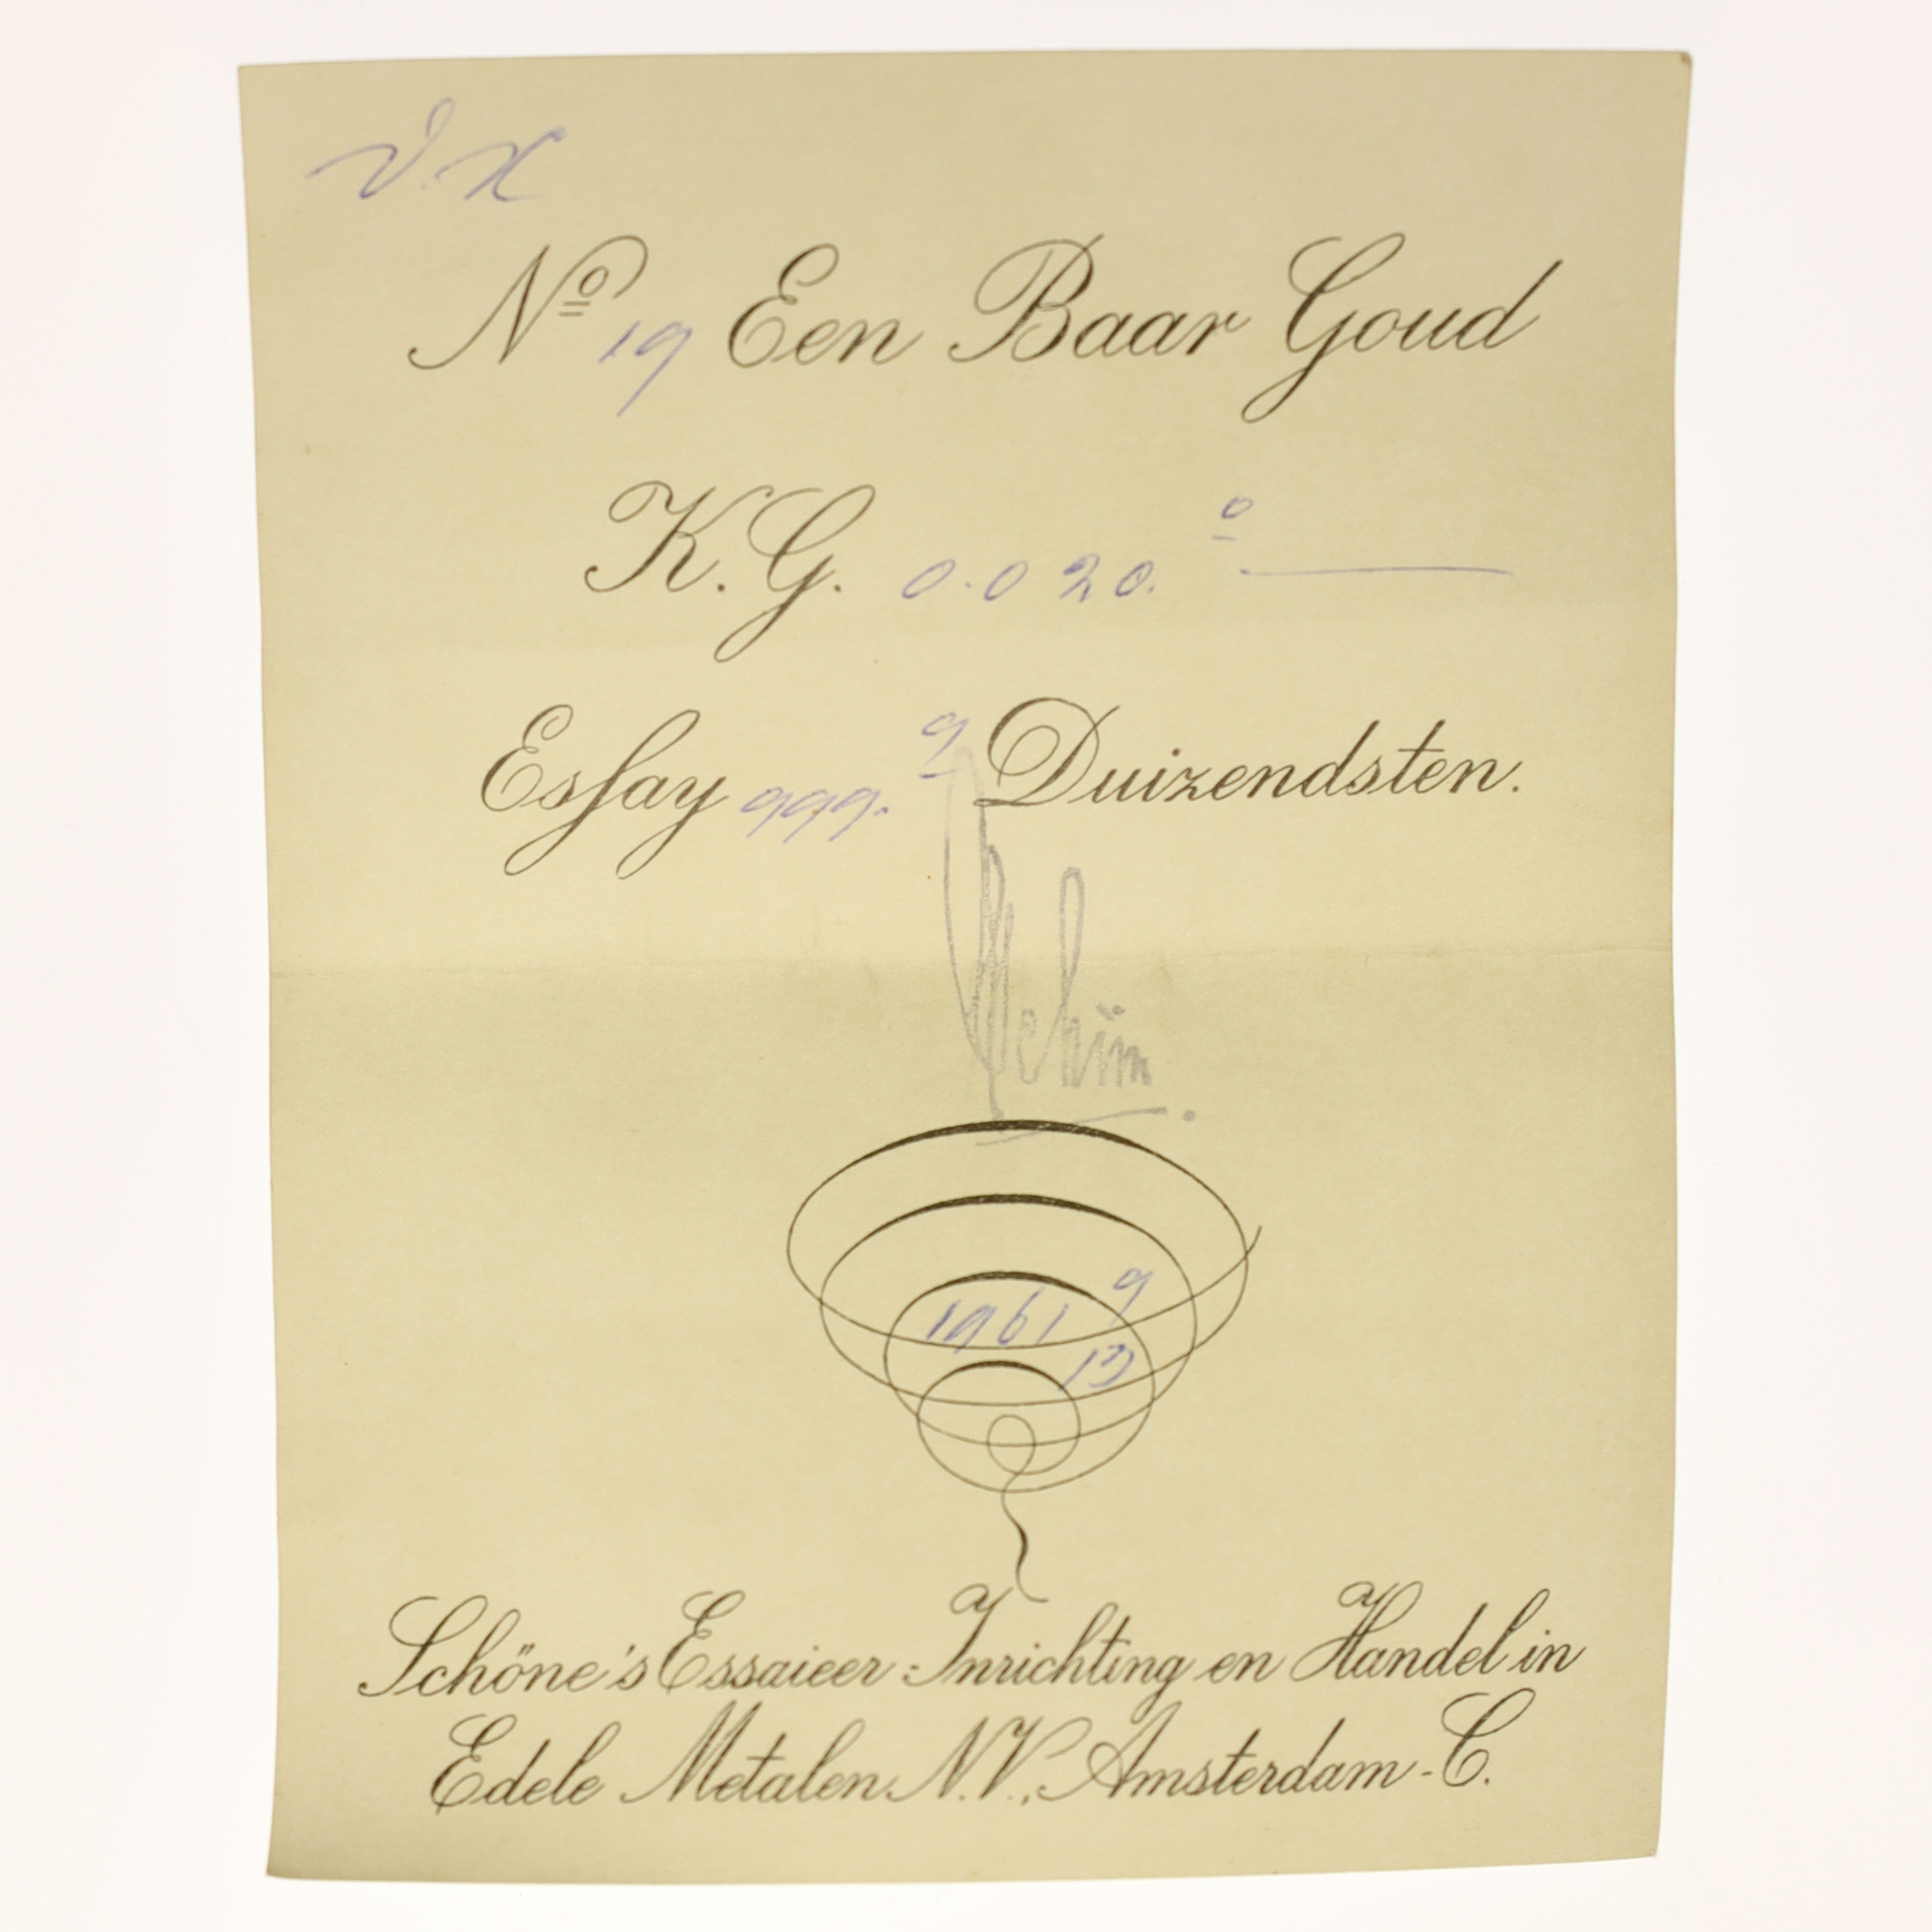 Nº 19 Een Baar Goud
K.G. 0.020.º
Essay 999.9 Duizendsten.
1961 9
Schöne's Essaieer-Inrichting en Handel in
Edele Metalen N.V., Amsterdam-C.